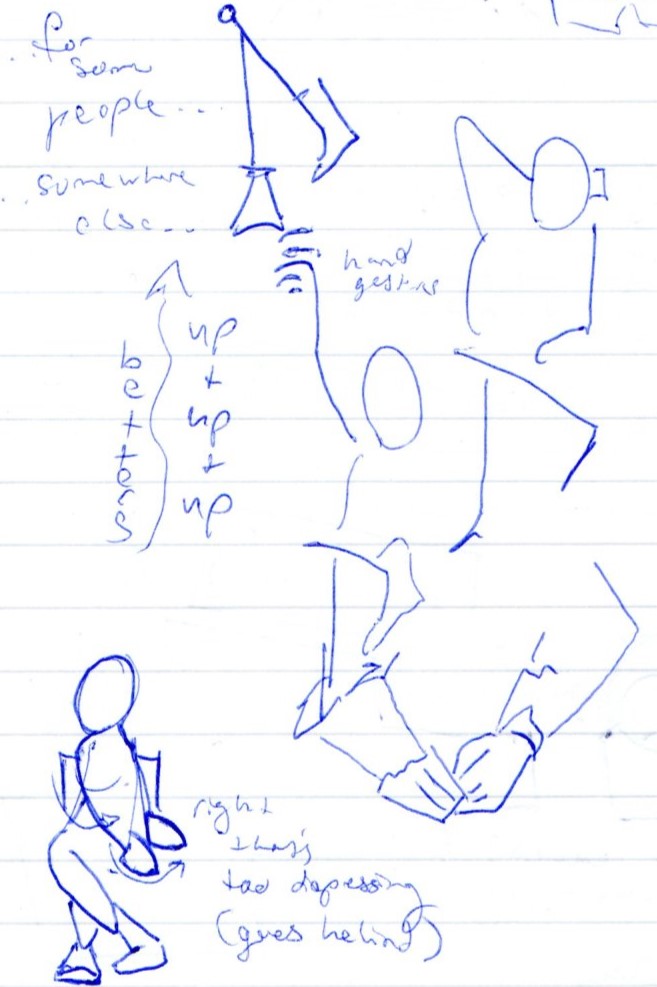 ...for
some
people...
...somewhere
else...
hand
gestures
up
+
up
+
up
betters
right
that's
too depessing
(goes behind)